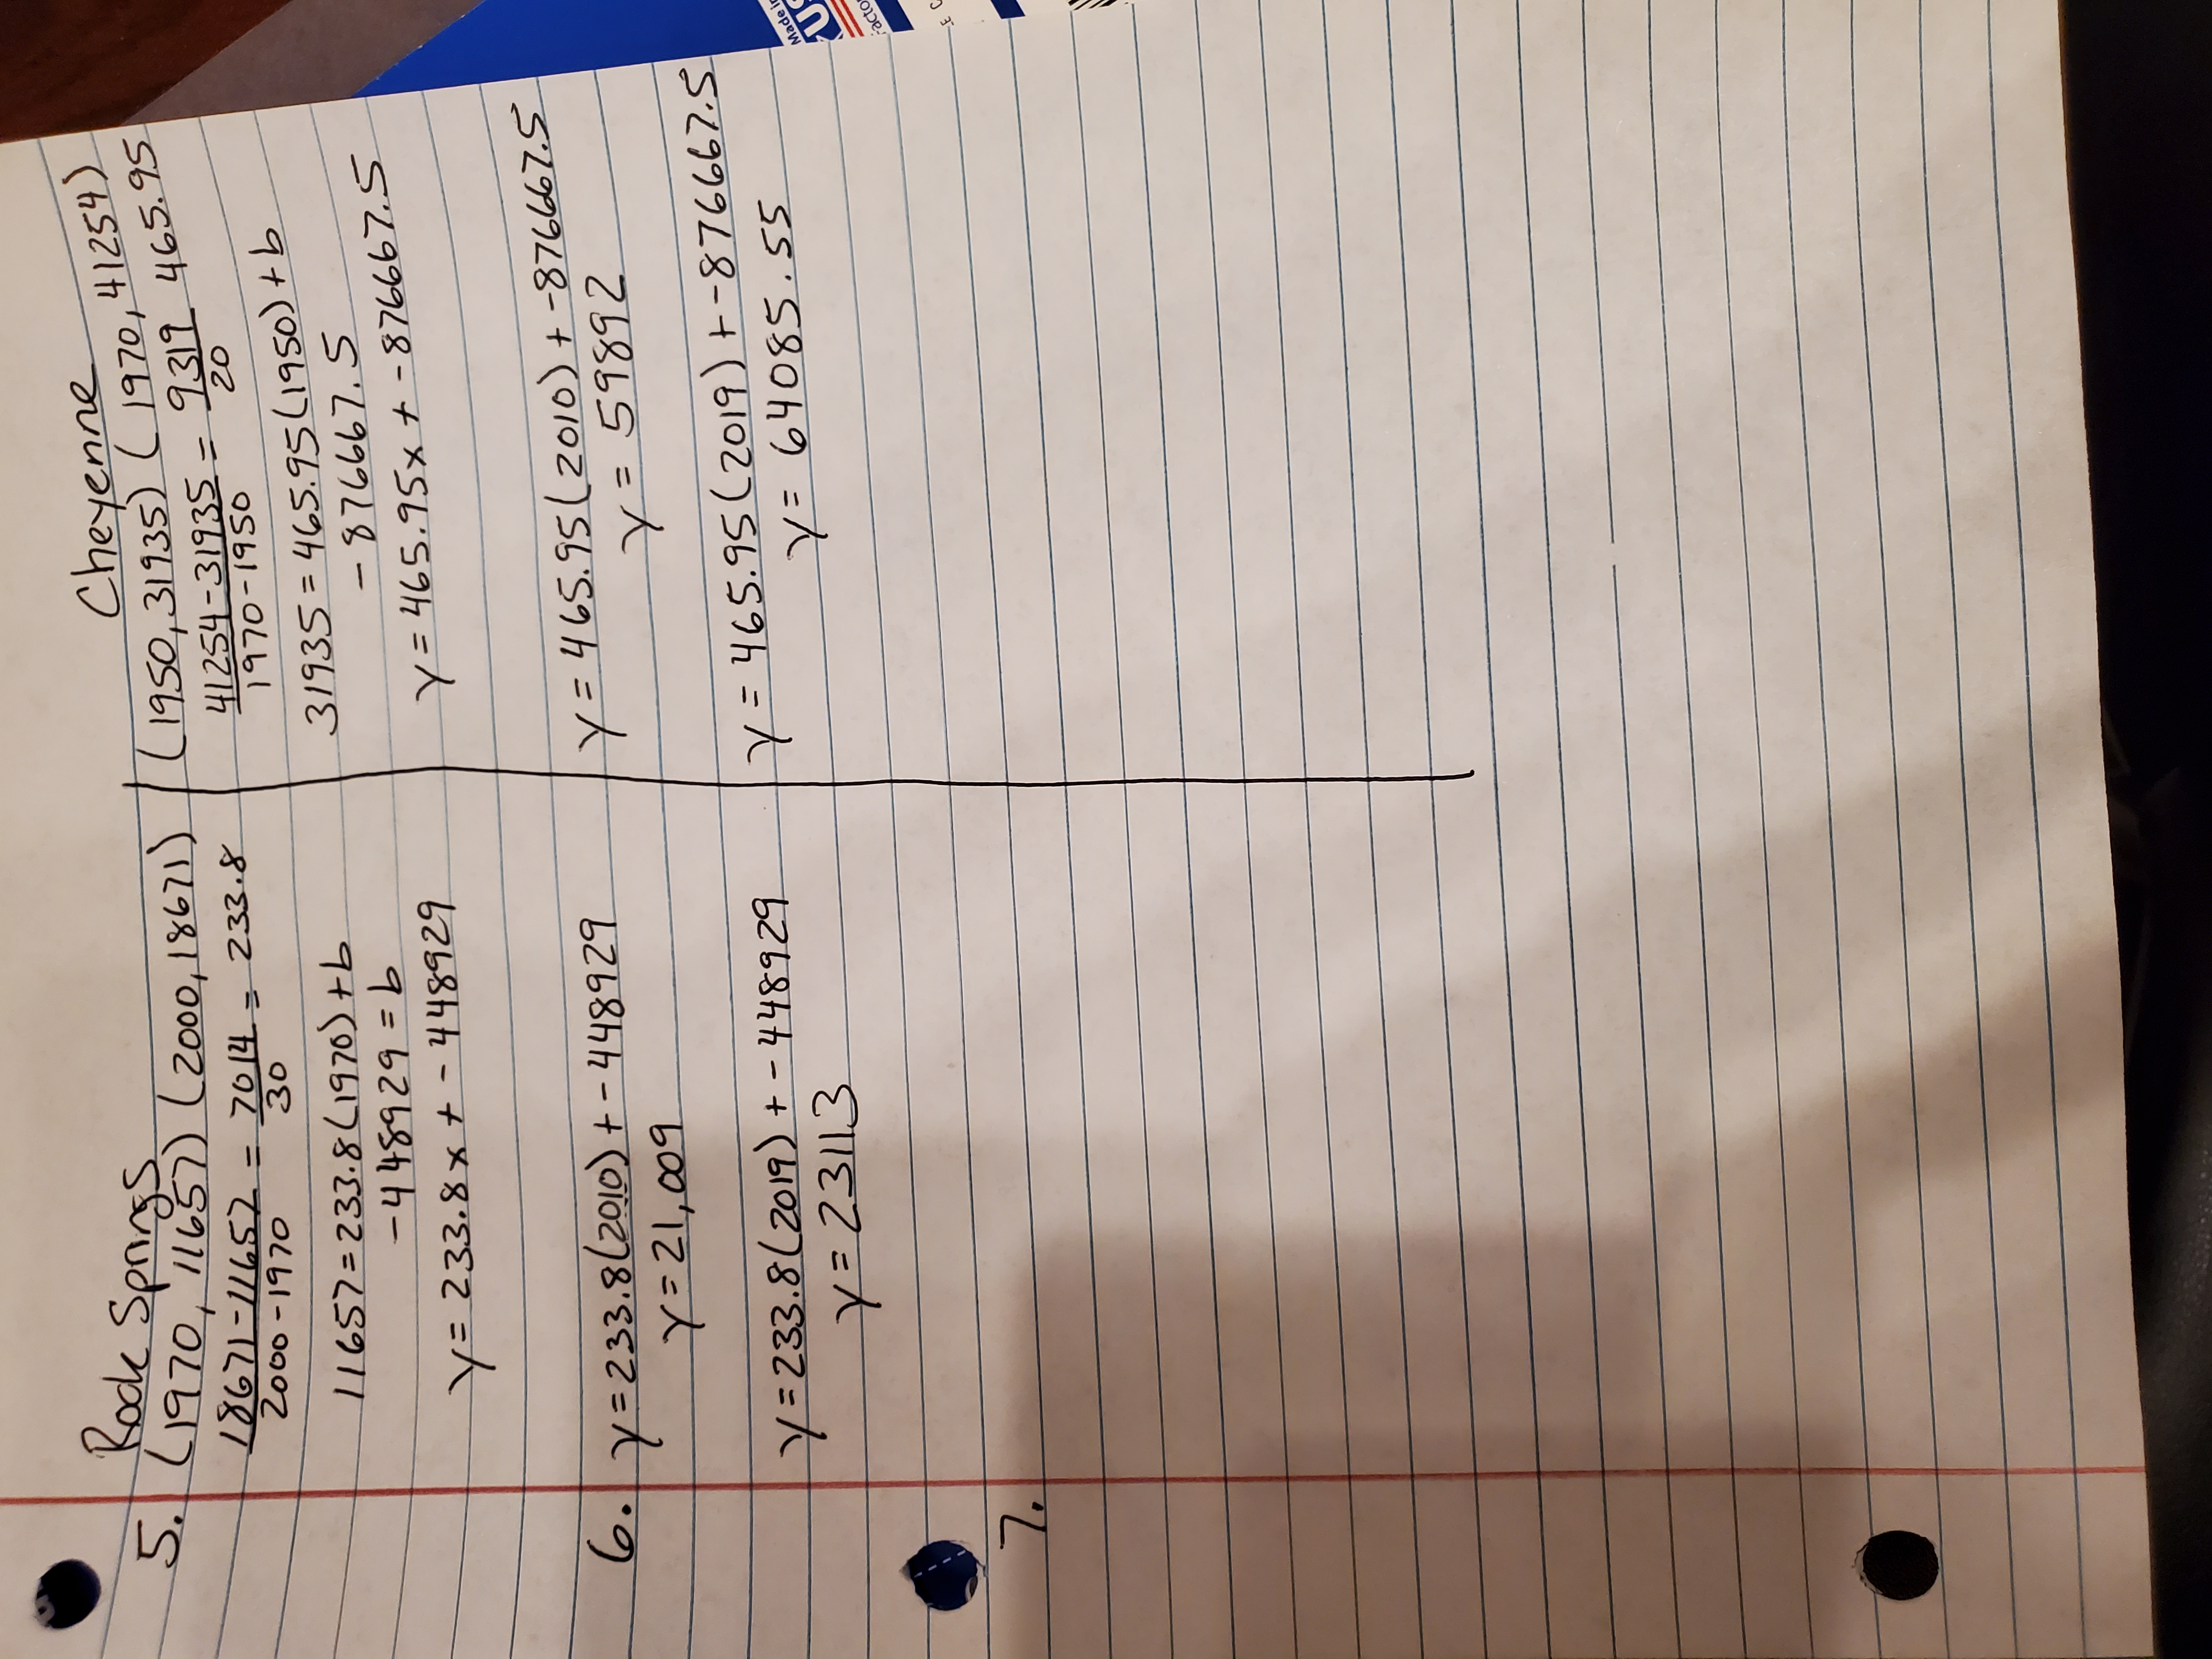 Rock Springs
5. (1970, 11657) (2000, 18671)
18671-11657 = 7014 = 233.8
2000-1970 30
11657=233.8(1970)+b
-448929=b
y=233.8x+-448929
6. y=233.8(2010)+-448929
y=21,009
y=233.8(2019)+-448929
y=23113
7.
Cheyenne
(1950, 31935) (1970, 41254)
41254-31935 = 9319 465.95
1970-1950 20
31935=465.95(1950)+b
-876667.5
y=465.95x+-876667.5
y=465.95(2010)+-876667.5
y=59892
y=465.95(2019)+-876667.5
y=64085.55
Made in
US